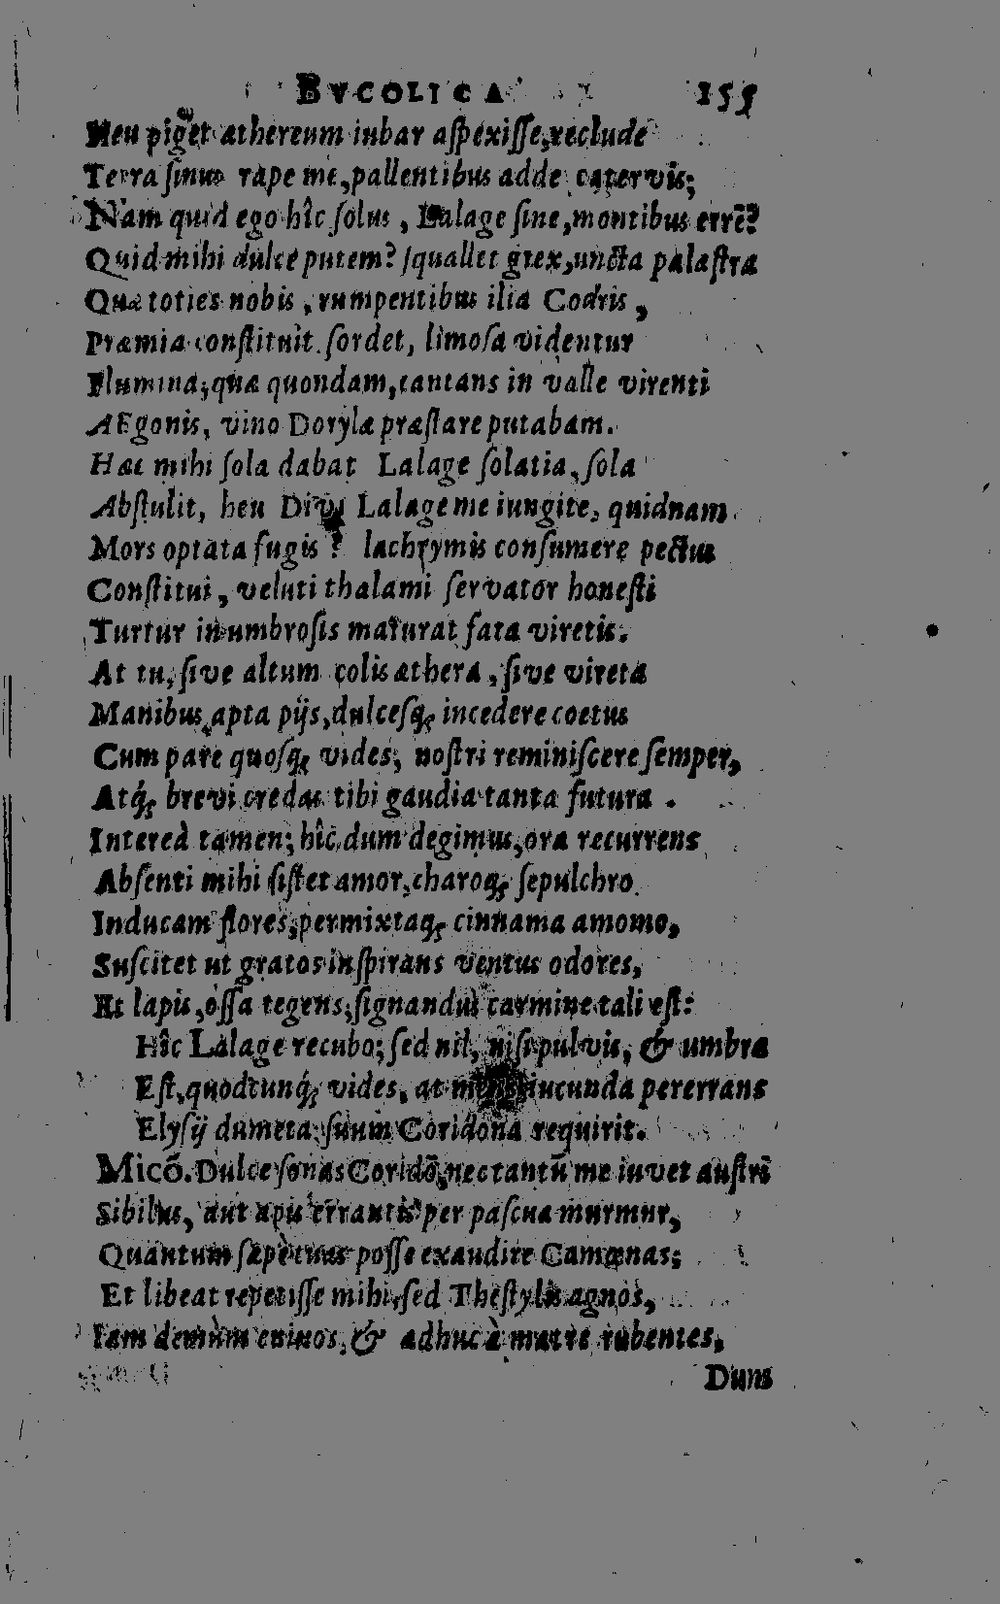 BVCOLICA 155
Heu piget æthereum iubar aſpexiſſe, reclude
Terra ſinus rape me, pallentibus adde catervis;
Nam quid ego hîc ſolus, Lalage ſine, montibus errē?
Quid mihi dulce putem? ſquallet grex, uncta palæſtra
Quæ toties nobis, rumpentibus ilia Codris,
Præmia conſtituit ſordet, limoſa videntur
Flumina; quæ quondam, cantans in valle virenti
AEgonis, vino Dorylæ præſtare putabam.
Hæc mihi ſola dabat Lalage ſolatia, ſola
Abſtulit, heu Divi Lalage me iungite, quidnam
Mors optata fugis? lachrymis conſumere pectus
Conſtitui, veluti thalami ſervator honeſti
Turtur in umbroſis maturat fata viretis.
At tu, ſive altum colis æthera, ſive vireta
Manibus apta pijs, dulceſq; incedere coetus
Cum pare quoſq; vides; noſtri reminiſcere ſemper,
Atq́; brevi credas tibi gaudia tanta futura.
Intereà tamen; hîc dum degimus, ora recurrens
Abſenti mihi ſiſtet amor, charoq; ſepulchro
Inducam flores, permixtaq; cinnama amomo,
Suſcitet ut gratos inſpirans ventus odores,
Et lapis, oſſa tegens, ſignandus carmine tali eſt:
Hîc Lalage recubo; ſed nil, niſi pulvis, & umbra
Eſt, quodcunq́; vides, at mens iucunda pererrans
Elyſij dumeta ſuum Coridona requirit.
Micō. Dulce ſonas Coridō, nec tantū me iuvet auſtri
Sibilus, aut apis errantis per paſcua murmur,
Quantum ſæpè tuas poſſe exaudire Camœnas;
Et libeat repetiſſe mihi, ſed Theſtylis agnos,
Iam demùm enixos, & adhuc à matre rubentes,
Dum